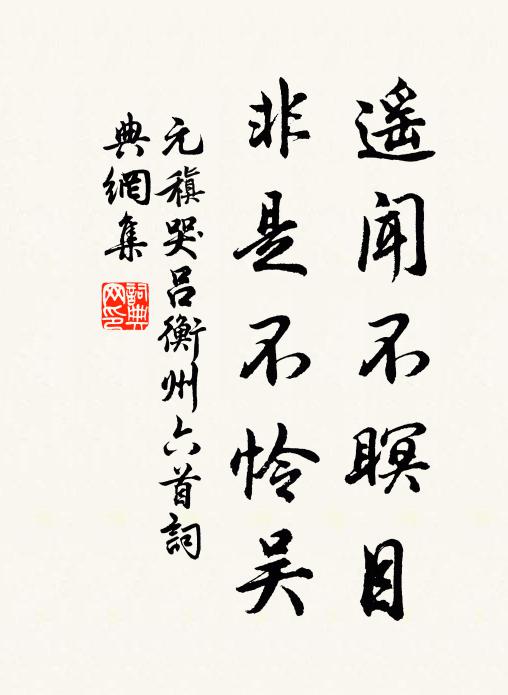 遥聞不暝目
非是不怜吴
元稹哭吕衡州六首詞
典網集
詞典
网印